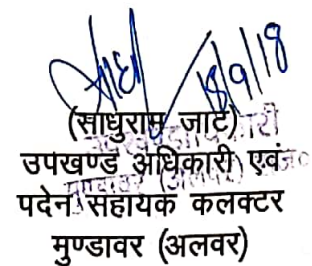 18/9/18
(साधुराम जाट)
उपखण्ड अधिकारी एवं
पदेन सहायक कलक्टर
मुण्डावर (अलवर)